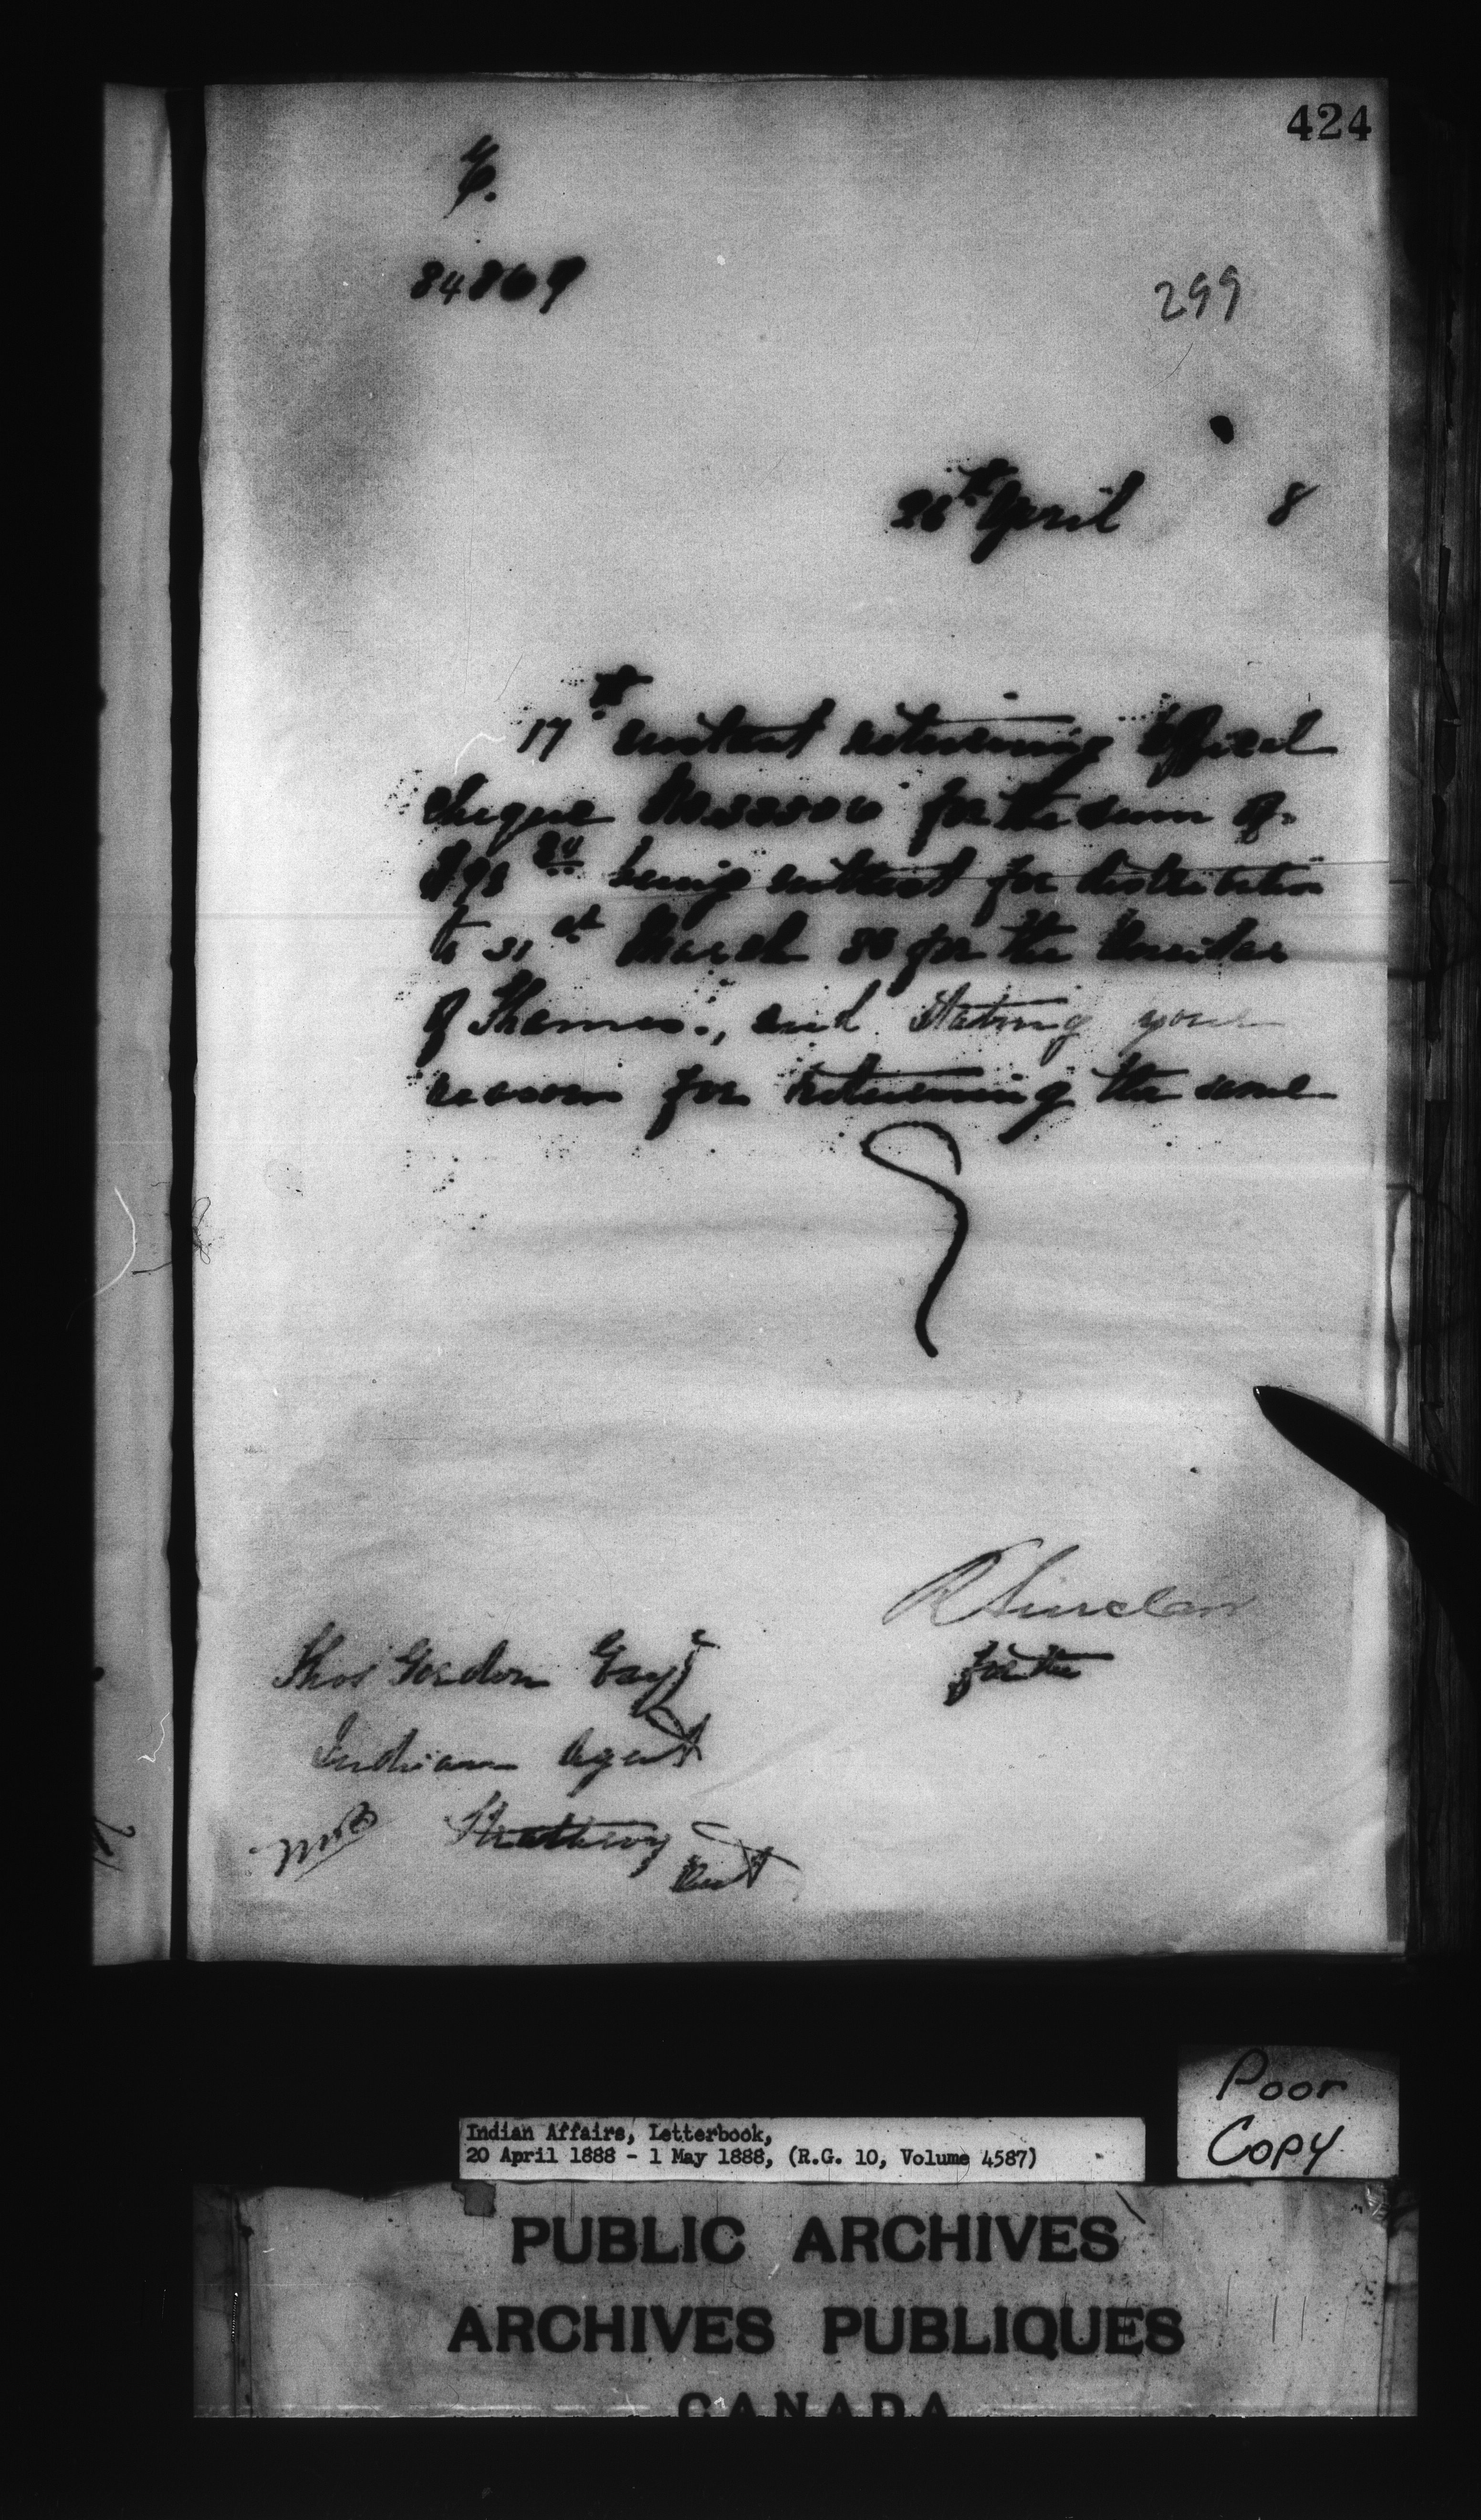 424
E.
84869
299
26th April 8
17th instant returning official
cheque No for the sum of
$98 being interest for distribution
to 31st March 88 for the Oneidas
of Thames, and stating your
reasons for returning the same
R Sinclair
for the
Thos Gordon Esqr
Indian Agent
Strathroy
Ont
Poor
Copy
Indian Affairs, Letterbook,
20 April 1888 - 1 May 1888, (R.G. 10, Volume 4587)
PUBLIC ARCHIVES
ARCHIVES PUBLIQUES
CANADA